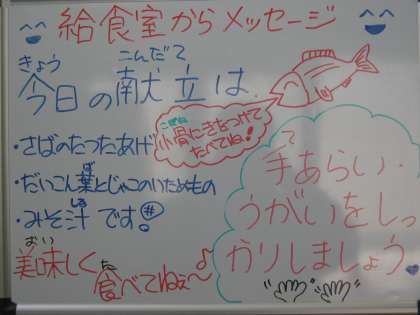 給食室からメッセージ
きょう こんだて
今日の献立は、
・さばのたつたあげ
こぼね
小骨にきをつけて
たべてね!
ば
・だいこん葉とじゃこのいためもの
しる
・みそ汁です!
おい た
美味しく食べてねぇ〜♪
て
手あらい・
うがいをしっ
かりしましょう